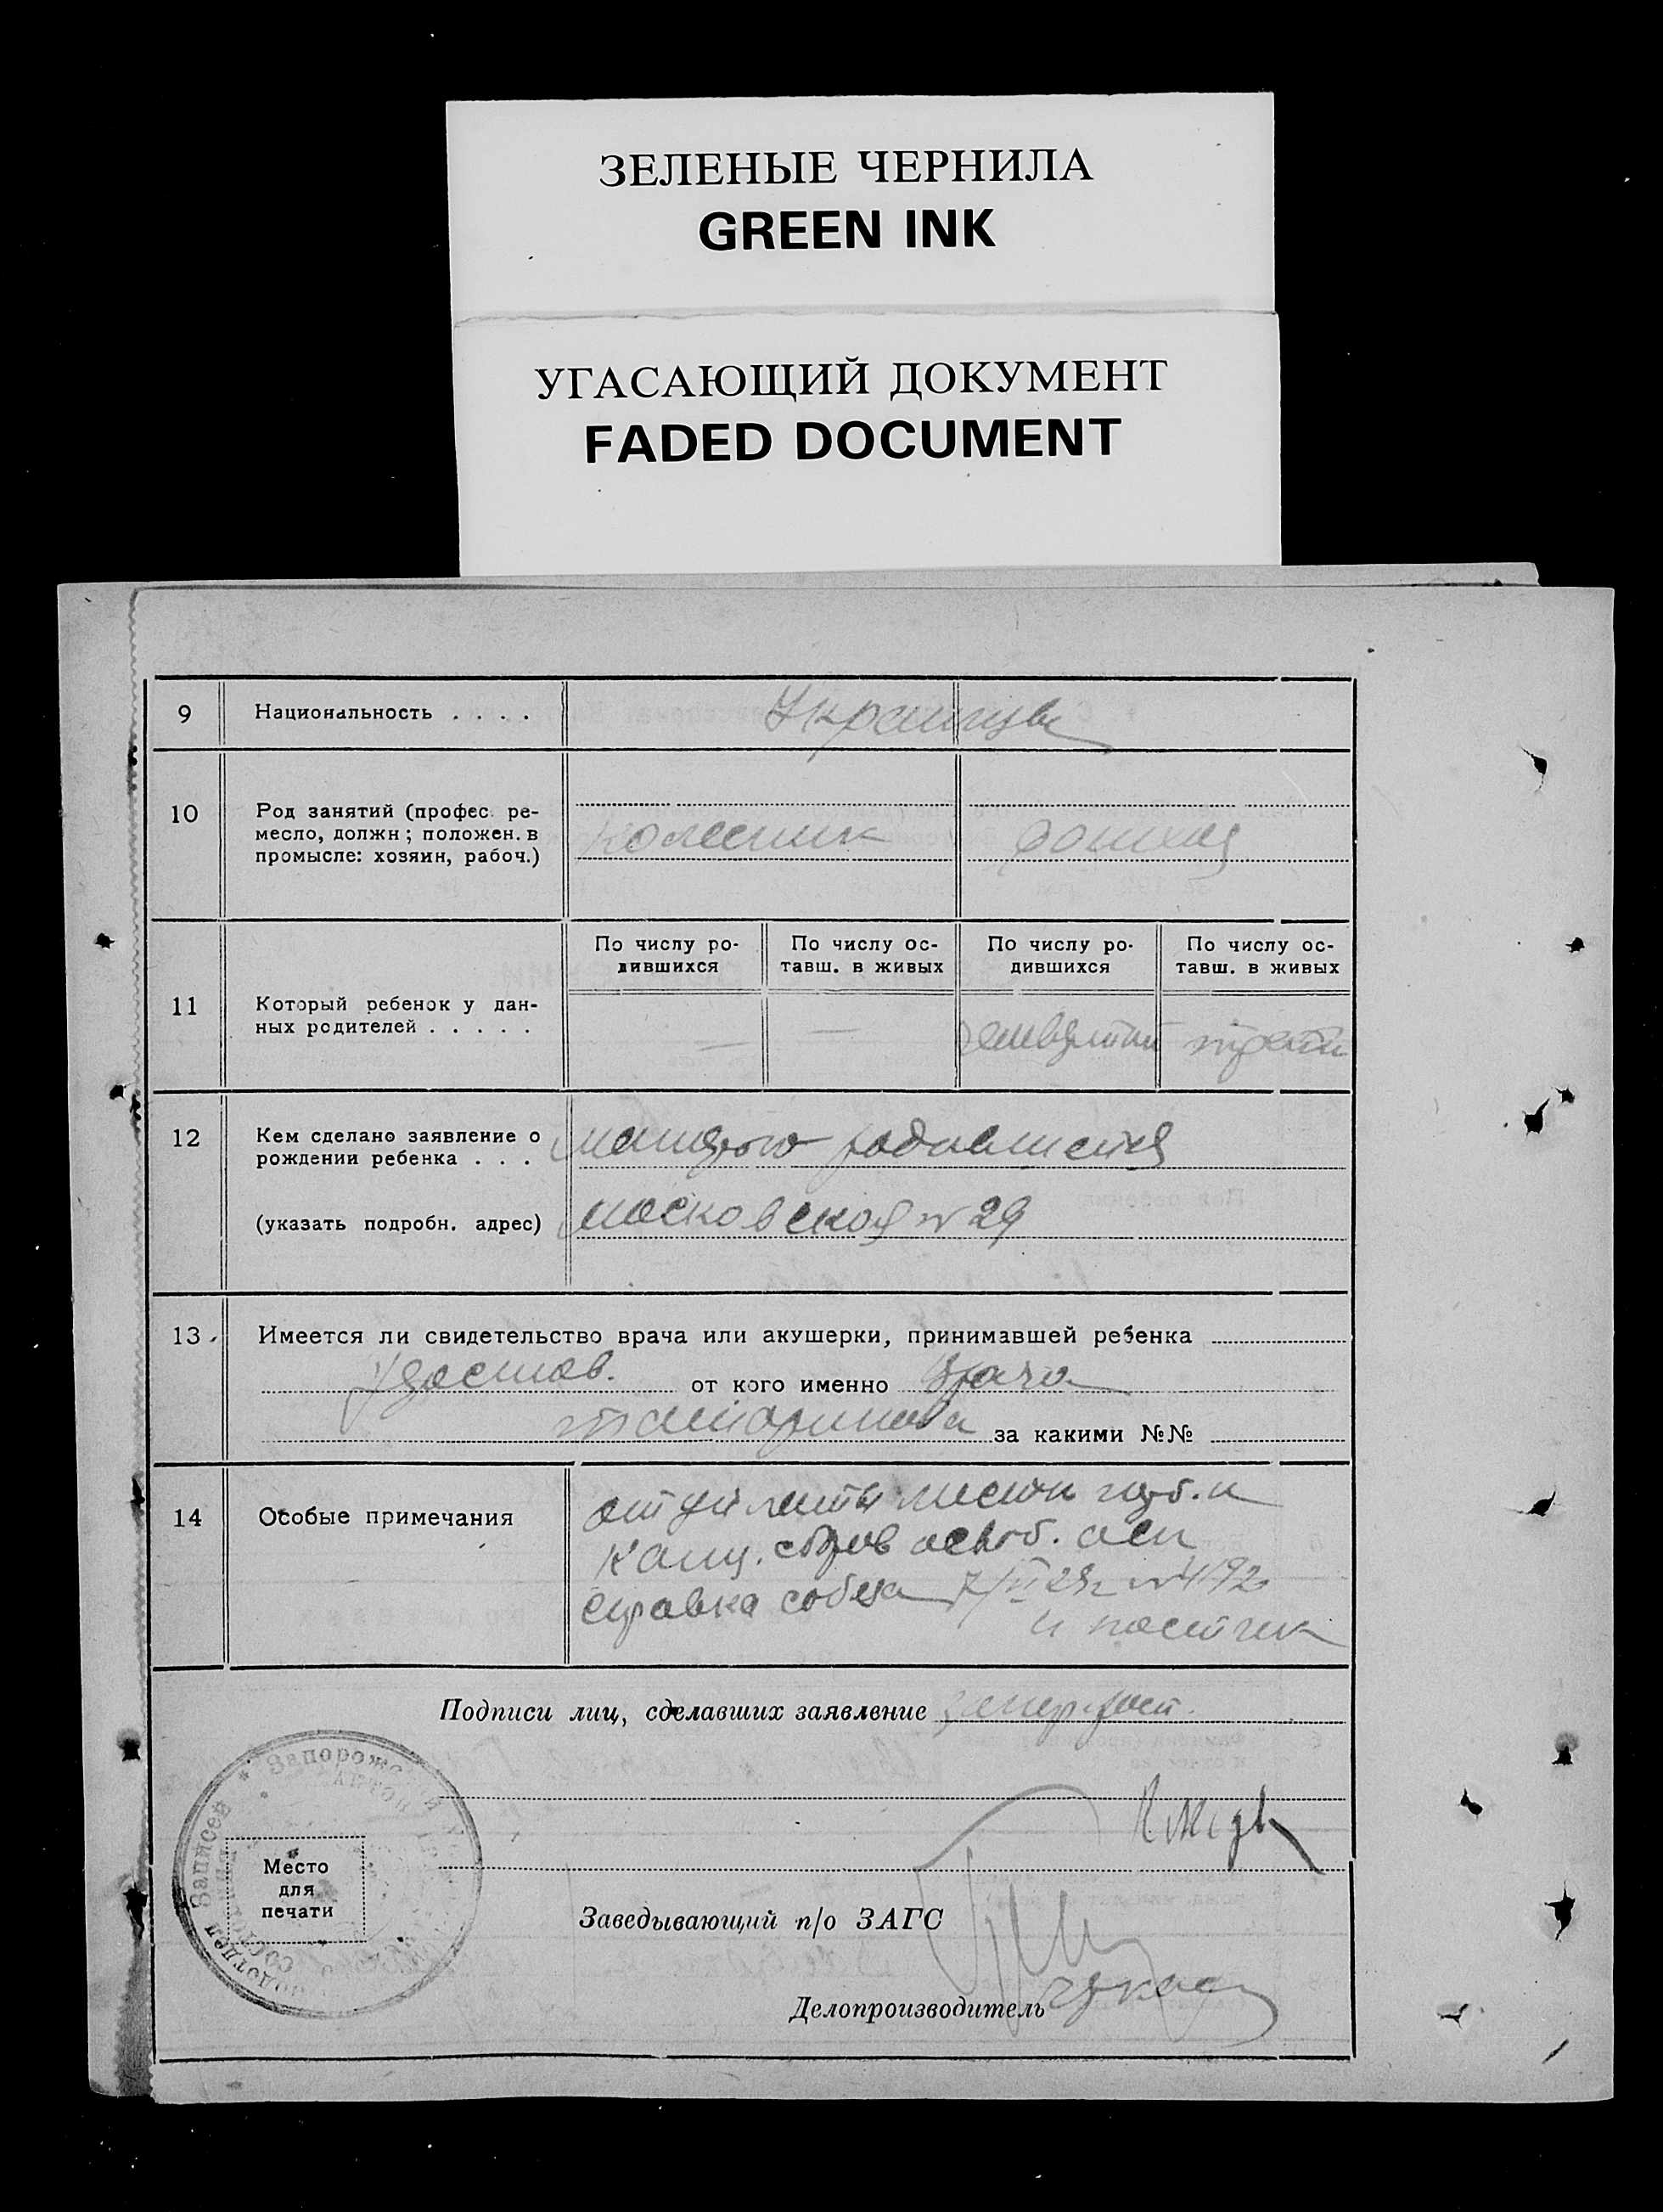 ЗЕЛЕНЫЕ ЧЕРНИЛА
GREEN INK
УГАСАЮЩИЙ ДОКУМЕНТ
FADED DOCUMENT
9 Национальность . . . . Украинцы
10 Род занятий (профес. ре-
месло, должн; положен. в
промысле: хозяин, рабоч.)
колесник домхоз
По числу ро-
дившихся
По числу ос-
тавш. в живых
По числу ро-
дившихся
По числу ос-
тавш. в живых
11 Который ребенок у дан-
ных родителей . . . . .
— — девятый третий
12 Кем сделано заявление о
рождении ребенка . . .
матерью родившегося
(указать подробн. адрес) Московская № 29
13. Имеется ли свидетельство врача или акушерки, принимавшей ребенка
Удостов. от кого именно врача
за какими №№
14 Особые примечания
от уплаты местн гербов. и
канц. сборов освоб.
справка собеса 7/ № 4192
и
Подписи лиц, сделавших заявление
Запорож
Записей
подотдел
Место
для
печати
Заведывающий п/о ЗАГС
Делопроизводитель